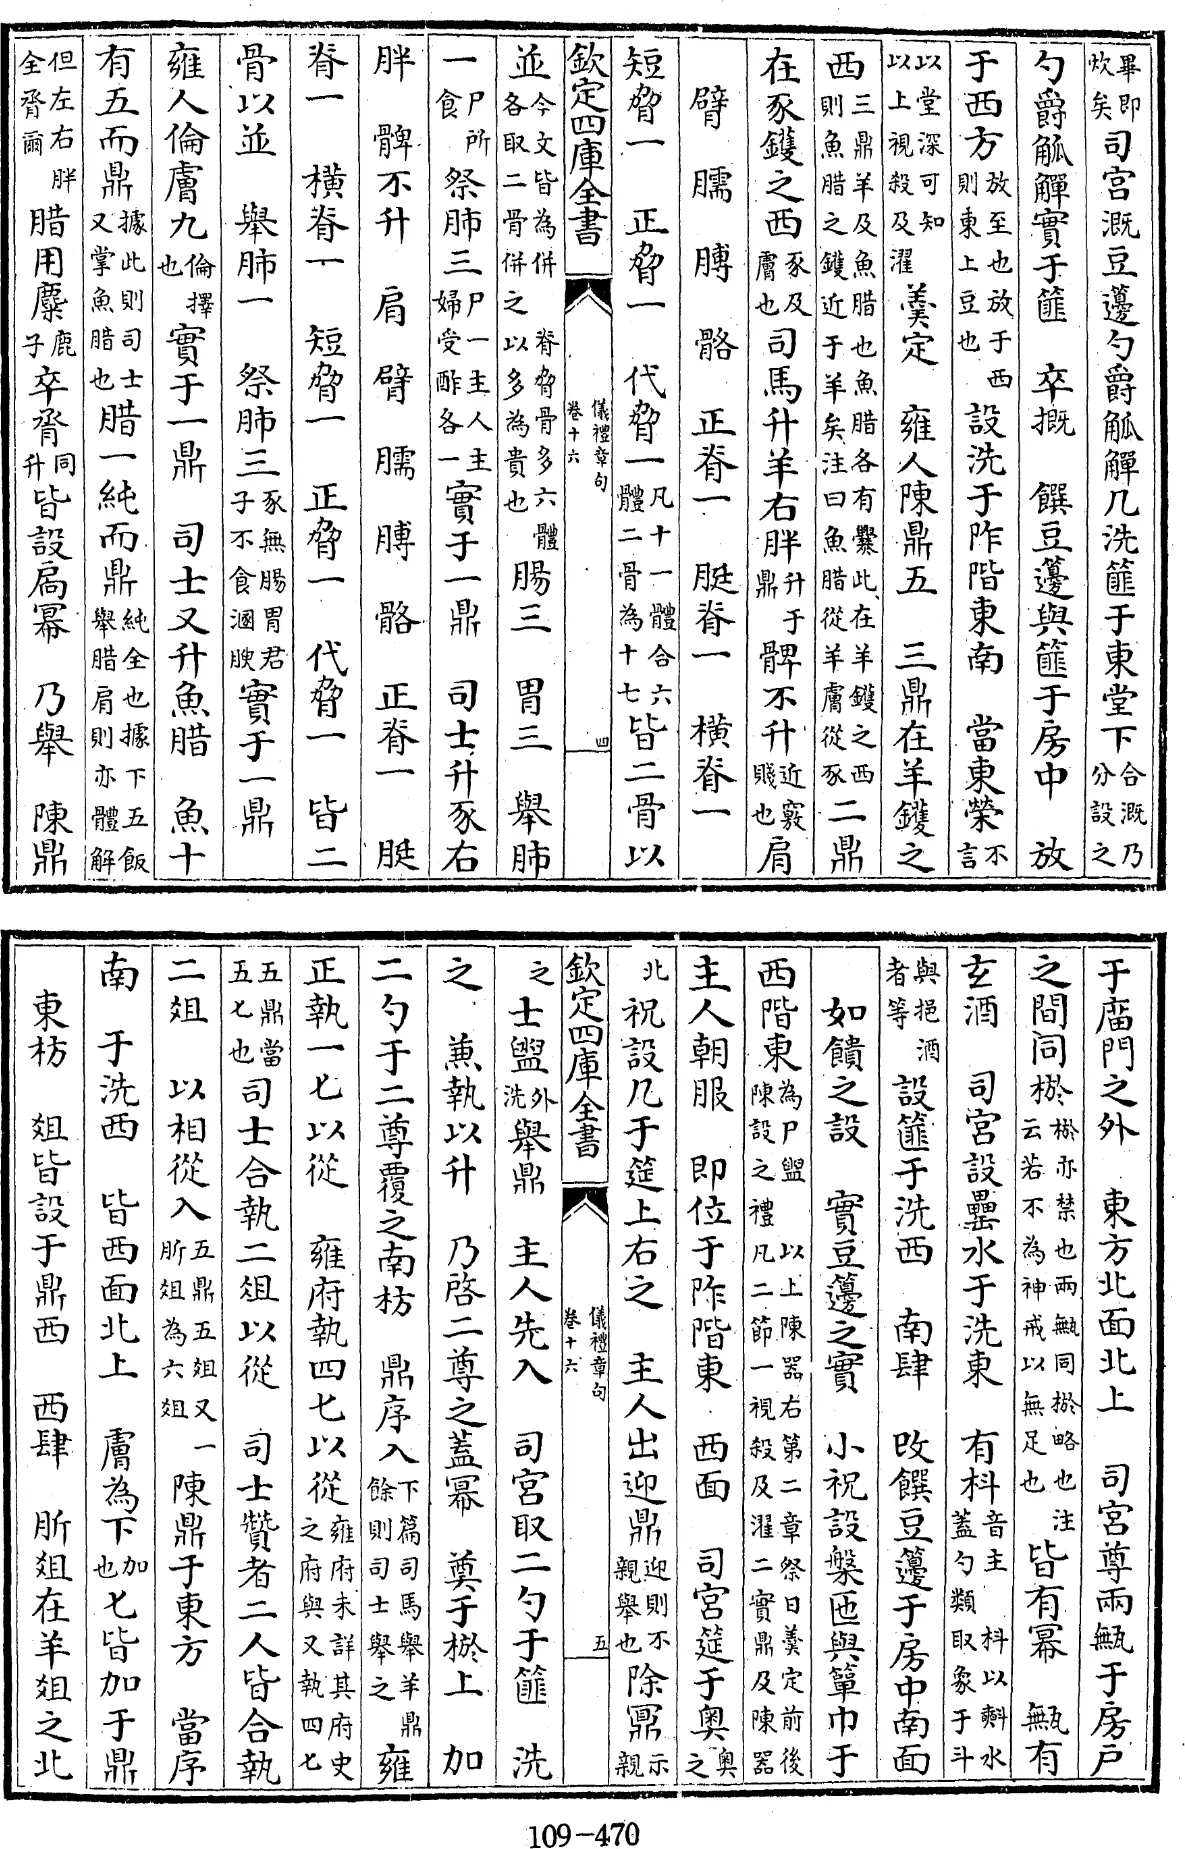 畢即炊矣司宮溉豆籩勺爵觚觶几洗篚于東堂下合溉乃分設之
勺爵觚觶實于篚　卒摡　饌豆籩與篚于房中　放
于西方放至也放于西則東上豆也設洗于阼階東南　當東榮言不
以堂深可知以上視殺及濯　羮定　雍人陳鼎五　三鼎在羊鑊之
西三鼎羊及魚腊也魚腊各有爨此在羊鑊之西則魚腊之鑊近于羊矣注曰魚腊從羊膚從豕二鼎
在豕鑊之西豕及膚也司馬升羊右胖升于鼎髀不升近竅賤也肩
臂　臑　膊　骼　正脊一　脡脊一　橫脊一
短脅一　正脅一　代脅一凡十一體合六體二骨為十七皆二骨以
欽定四庫全書　儀禮章句　卷十六　四
並今文皆為併各取二骨併之　脊脅骨多六體以多為貴也腸三　胃三　舉肺
一尸所食祭肺三尸一主人主婦受酢各一實于一鼎　司士升豕右
胖　髀不升　肩　臂　臑　膊　骼　正脊一　脡
脊一　橫脊一　短脅一　正脅一　代脅一　皆二
骨以並　舉肺一　祭肺三豕無腸胃君子不食溷腴實于一鼎
雍人倫膚九倫擇也實于一鼎　司士又升魚腊　魚十
有五而鼎據此則司士又掌魚腊也腊一純而鼎純全也據下五飯舉腊肩則亦體解
但左右胖全脀爾　腊用麋鹿子卒脀同升皆設扃幂　乃舉　陳鼎
于廟門之外　東方北面北上　司宮尊兩甒于房戶
之間同棜棜亦禁也兩甒同棜略也注云若不為神戒以無足也皆有幂　甒有
玄酒　司宮設罍水于洗東　有枓音主　枓以㪺水蓋勺類取象于斗
與挹酒者等　設篚于洗西　南肆　改饌豆籩于房中南面
如饋之設　實豆籩之實　小祝設槃匜與簞巾于
西階東為尸盥　以上陳器右第二章祭日羮定前後陳設之禮凡二節一視殺及濯二實鼎及陳器
主人朝服　即位于阼階東　西面　司宮筵于奧奧之
北　祝設几于筵上右之　主人出迎鼎迎則不親舉也除鼏示親
欽定四庫全書　儀禮章句　卷十六　五
之　士盥外洗舉鼎　主人先入　司宮取二勺于篚　洗
之　兼執以升　乃啓二尊之蓋幂　奠于棜上　加
二勺于二尊覆之南枋　鼎序入下篇司馬舉羊鼎餘則司士舉之雍
正執一匕以從　雍府執四匕以從雍府未詳其府史之府與又執四匕
五鼎當五匕也司士合執二俎以從　司士贊者二人皆合執
二俎　以相從入五鼎五俎又一肵俎為六俎　陳鼎于東方　當序
南　于洗西　皆西面北上　膚為下加也匕皆加于鼎
東枋　俎皆設于鼎西　西肆　肵俎在羊俎之北
109-470